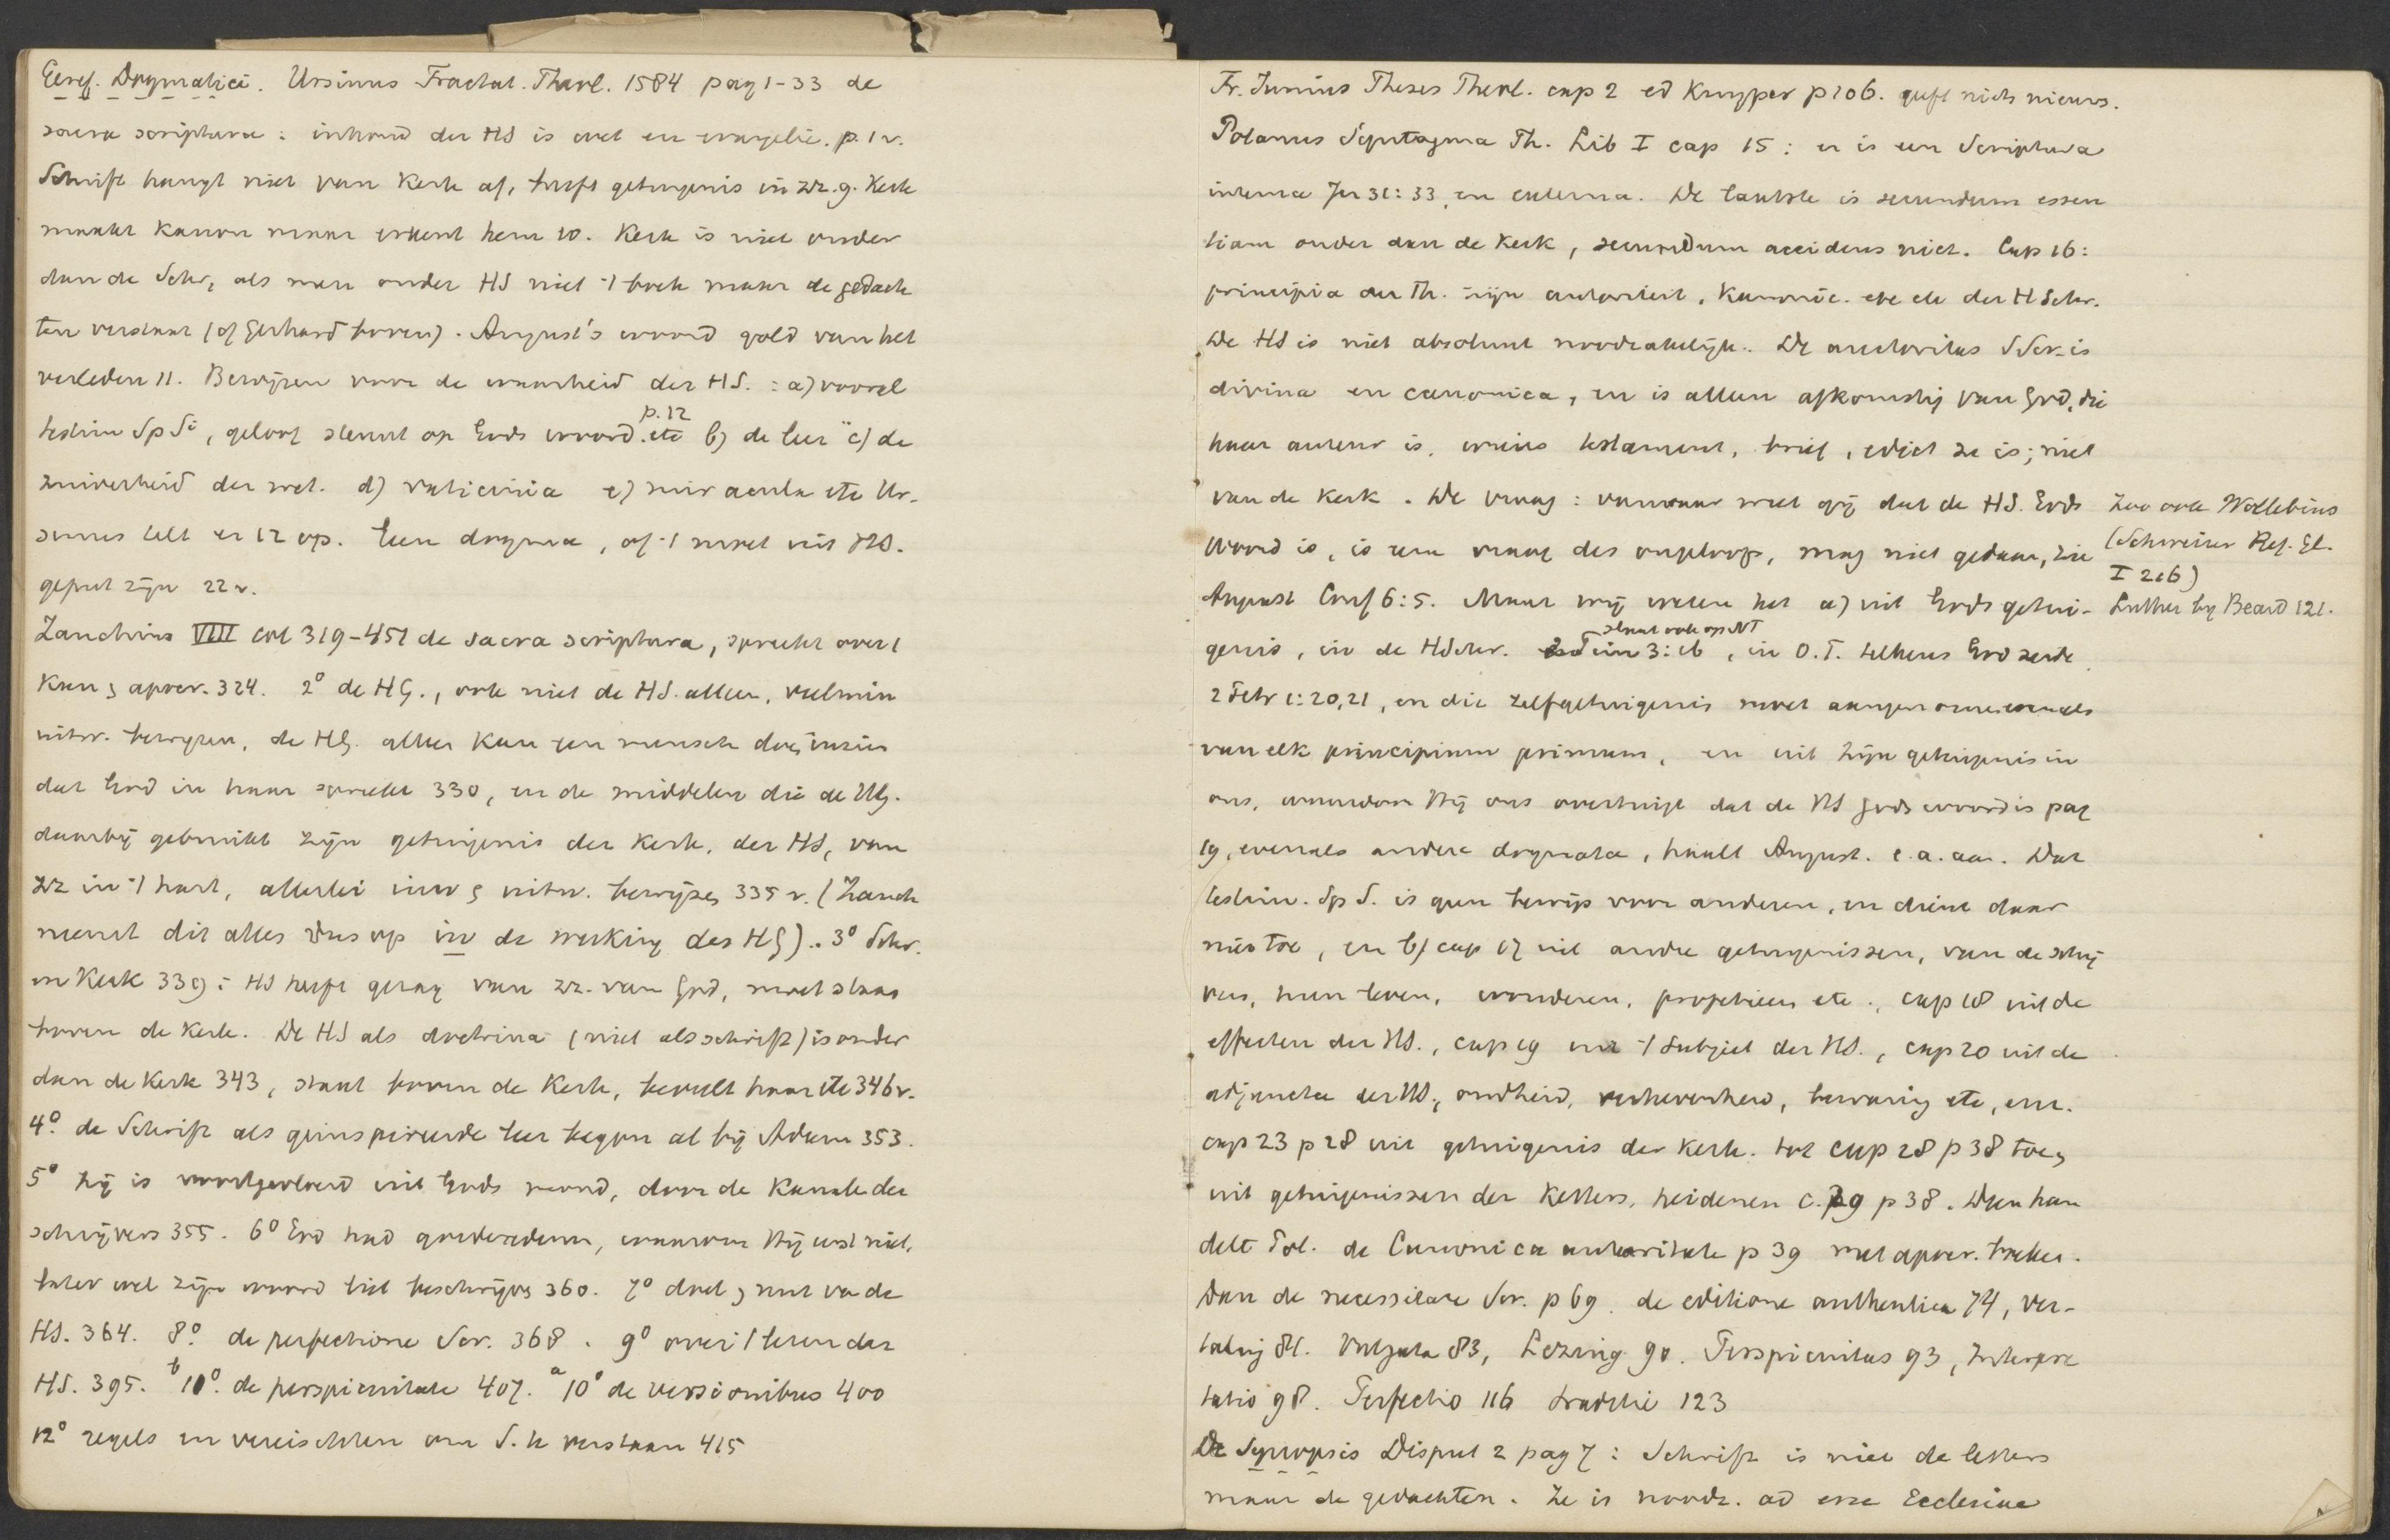 Geref. Dogmatici. Ursinus Tractat. Theol. 1584 pag 1-33 de
sacra scriptura: inhoud der HS is wet en evangelie. p. 1 v.
Schrift hangt niet van Kerk af, heeft getuigenis in zz. g. Kerk
maakt Kanon maar erkent hem 10. Kerk is niet ouder
dan de Schr, als men onder HS niet -1 boek maar de gedach
ten verstaat (cf Gerhard boven). August's woord gold van het
verleden 11. Bewijzen voor de waarheid der HS.: a) vooral
testim Sp Si, geloof steunt op Gods woord. etc p. 12 b) de leer c) de
zuiverheid der wet. d) vaticinia e) miracula etc Ur-
sinus telt er 12 op. Een dogma, cf -1 moet uit HS.
geput zijn 22 v.
Zanchius VIII col 319-451 de sacra scriptura, spreekt over 1
Kan, apocr. 324. 2° de HG., ook niet de HS. alleen, veelmin
uitw. bewijzen, de HG. alleen kan een mensch doen inzien
dat God in haar spreekt 330, en de middelen die de HG.
daarbij gebruikt zijn getuigenis der Kerk, der HS, van
zz in -1 hart, allerlei inw, uitw. bewijzen 335 v. (Zanch
neemt dit alles dus op in de werking des HG).. 3° Schr.
en Kerk 339: HS heeft gezag van zz. van God, moet staan
boven de Kerk. De HS als doctrina (niet als schrift) is ouder
dan de Kerk 343, staat boven de Kerk, beveelt haar etc 346 v.
4° de Schrift als geinspireerde leer begon al bij Adam 353.
5° Hij is voortgevloeid uit Gods mond, door de Kanalen der
schrijvers 355. 6° God had goede redenen, waarom Hij eerst niet,
later wel zijn woord liet beschrijven 360. 7° doel, nut van de
HS. 364. 8° de perfectione Scr. 368. 9° over 1 lezen der
HS. 395. b 11° de perspicuitate 407. a 10° de versionibus 400
12° regels en vereischten om S. te verstaan 415
Fr. Junius Theses Theol. cap 2 ed Kuyper p 206. geeft niets nieuws.
Polanus Syntagma Th. Lib I cap 15: er is een Scriptura
interna Jer 31:33, en externa. De laatste is secundum essen
tiam ouder dan de Kerk, secundum accidens niet. Cap 16:
principia der Th. zijn autoriteit, Kanonic. etc etc der H Schr.
De HS is niet absoluut noodzakelijk. De auctoritas S Scr. is
divina en canonica, en is alleen afkomstig van God, die
haar auteur is, wiens testament, brief, edict ze is; niet
van de Kerk. De vraag: vanwaar weet gij dat de HS. Gods
Woord is, is een vraag des ongeloofs, mag niet gedaan, zie
August Conf 6:5. Maar wij weten het a) uit Gods getui-
genis, in de HSchr. 2 Tim 3:16 slaat ook op NT, in O.T. telkens God zeide
2 Petr 1:20,21, en die zelfgetuigenis moet aangenomen evenals
van elk principium primum, en uit zijn getuigenis in
ons, waardoor Hij ons overtuigt dat de HS Gods woord is pag
19, evenals andere dogmata, haalt August. e.a. aan. Dat
testim. Sp S. is geen bewijs voor anderen, en dient daar
niet toe, en b) cap 17 uit andre getuigenissen, van de schrij
vers, hun leven, wonderen, profetieen etc., cap 18 uit de
effecten der HS., cap 19 uit -1 Subject der HS., cap 20 uit de
adjuncta der HS., oudheid, verhevenheid, bewaring etc, enz.
cap 23 p 28 uit getuigenis der Kerk. tot cap 28 p 38 toe,
uit getuigenissen der Ketters, heidenen c. 29 p 38. Dan han
delt Pol. de Canonica autoritate p 39 met apocr. boeken.
Dan de necessitate Scr. p 69. de editione authentica 74, ver-
taling 81. Vulgata 83, Lezing 90. Perspicuitas 93, Interpre
tatio 98. Perfectio 116 traditie 123
De Synopsis Disput 2 pag 7: Schrift is niet de letters
maar de gedachten. Ze is noodz. ad esse Ecclesiae
Zoo ook Wollebius
(Schweizer Ref. Gl.
I 206)
Luther by Beard 121.